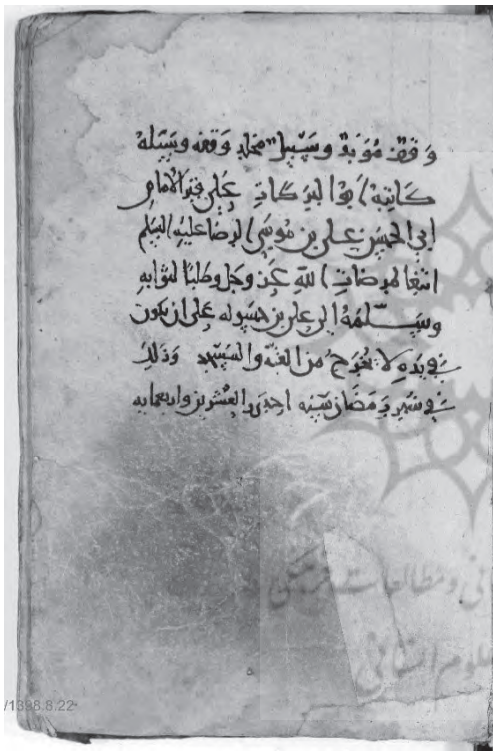 وقف مؤبد وسبيل مخلد وقفه وسبله
كاتبه ابوا البركات على قبر الامام
ابي الحسن علي بن موسى الرضا عليه السلم
ابتغا لمرضات الله عز وجل وطلبا لثوابه
وسلمه الى علي بن حسوله على ان يكون
في يده لا يخرج من القبه والمشهد وذلك
في شهر رمضان سنه احدى والعشرين واربعمايه
نی و مطالعات فرهنگی
علوم انسانی
/1398.8.22